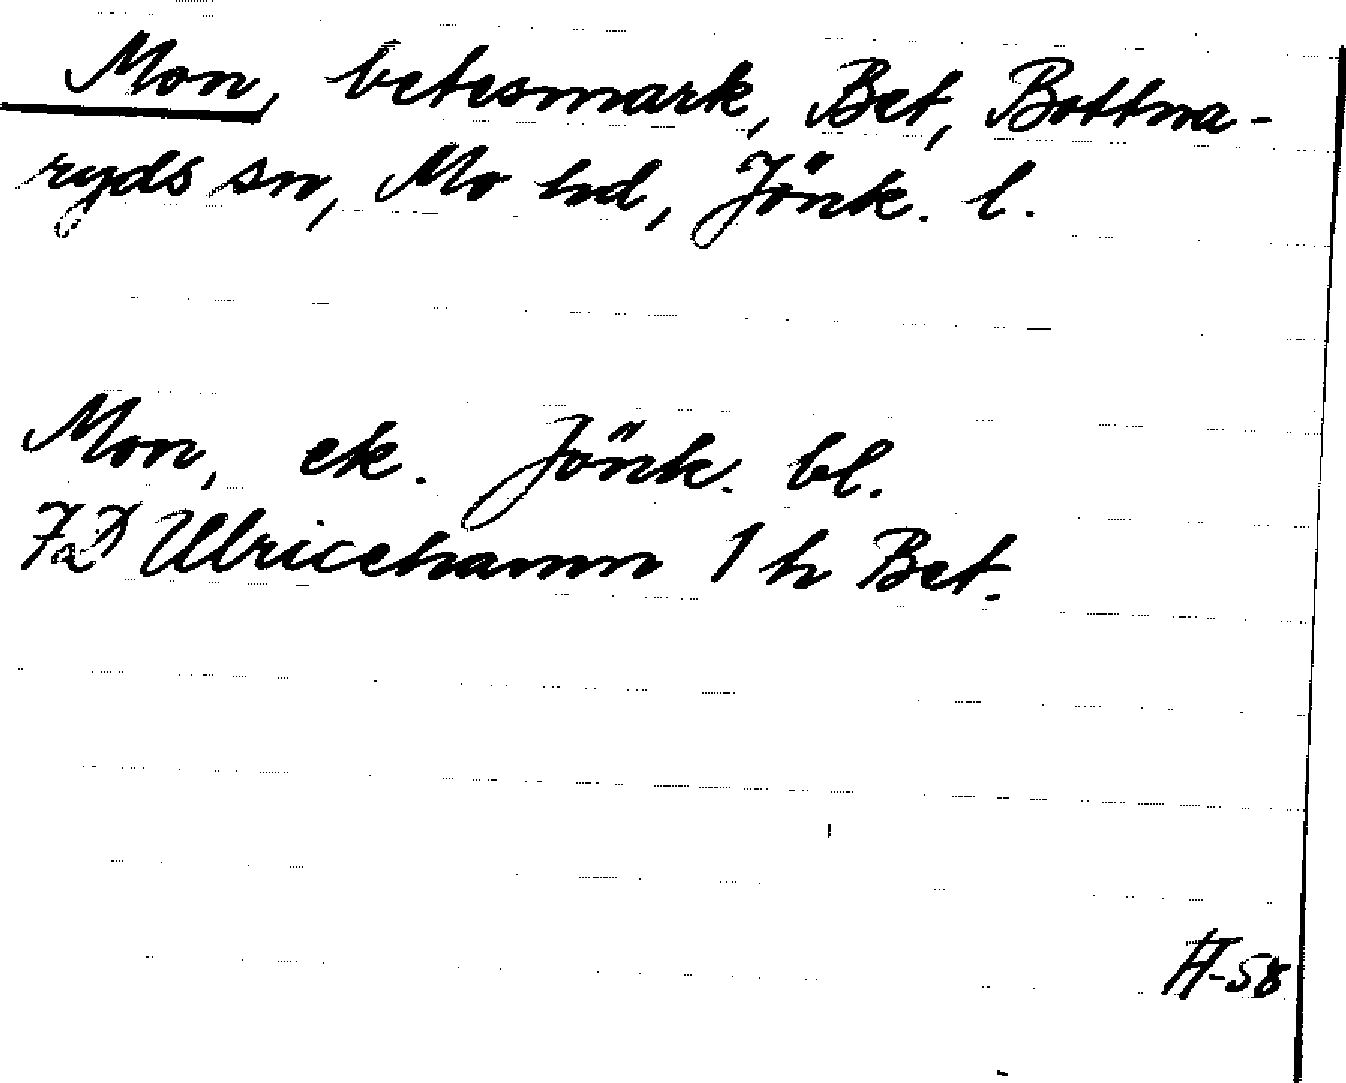 Mon, betesmark, Bet, Bottna-
ryds sn, Mo hd, Jönk. l.
Mon, ek. Jönk. bl.
7D Ulricehamn 1 h Bet.
H-58